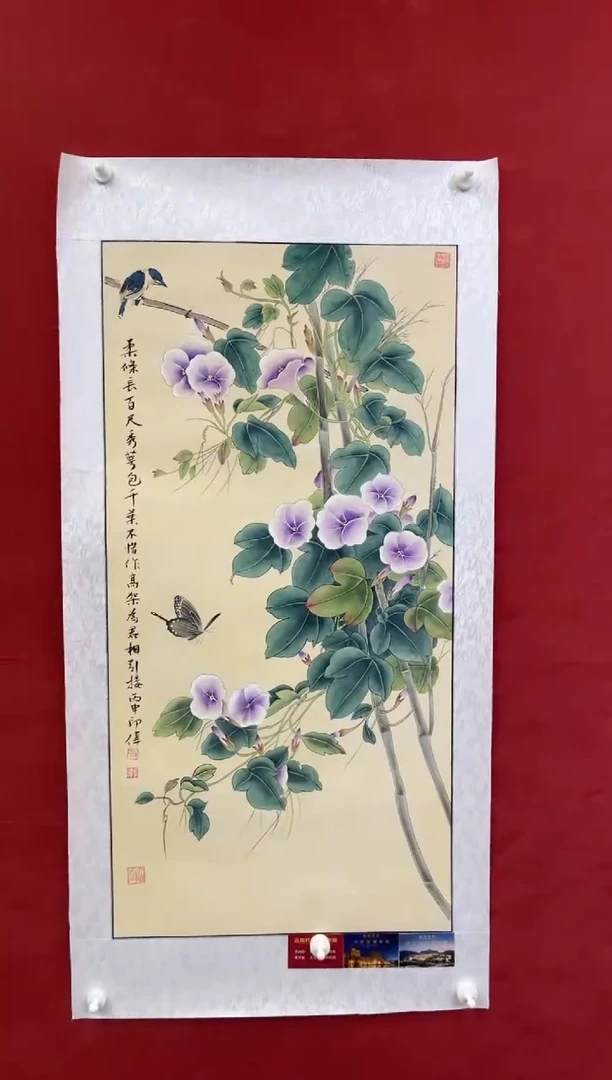 柔條長百尺秀萼包千葉不惜作高架為君相引接丙申